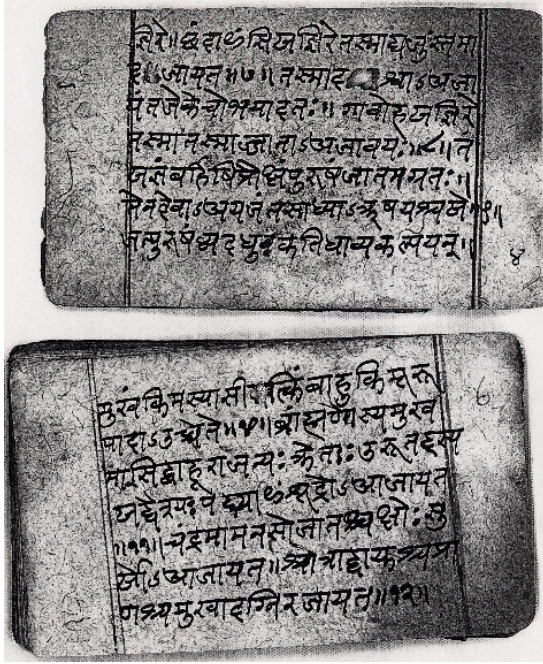 ज्ञिरे॥ छंदाᳪसि यज्ञिरे तस्माद्यजुस्तस्मा
जायत॥७॥ तस्माद श्वाऽअजा
यंत जे के चोभयादतः॥ गावो ह यज्ञिरे
तस्मात्तस्माज्जाताऽअजावयः॥८॥ त
जज्ञं बर्हिषि प्रौक्षंपुरुषं जातमग्रतः॥
तेन देवाऽअयजंत साध्याऽऋषयश्च ये॥९॥
जत्पुरुषं व्यदधुः कतिधा व्यकल्पयन्॥
४
मुखं किमस्यासीत् किं बाहू किमूरू
पादाऽउच्येते॥१०॥ ब्राह्मणोस्य मुख
मासीद्बाहू राजन्यः कृतः॥ उरू तदस्य
यद्वैश्यः पद्भ्याᳪ शूद्रोऽअजायत
॥११॥ चंद्रमा मनसो जातश्चक्षोः सु
र्योऽअजायत॥ श्रोत्राद्वायुश्च प्रा
णश्च मुखादग्निरजायत॥१२॥